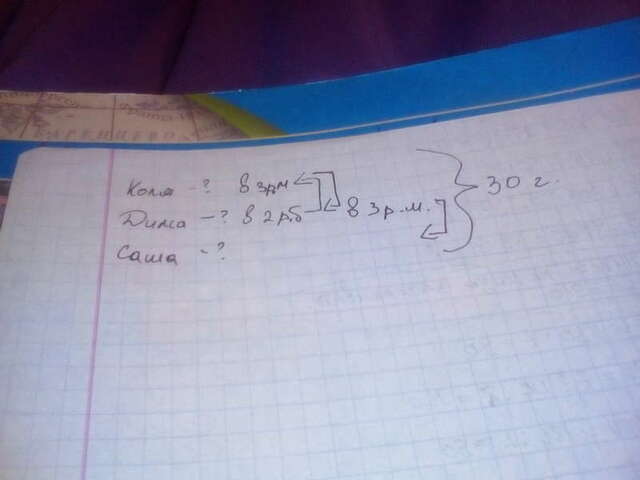 БАРЕНЦЕВО
Коля - ? в 3р.м
Дима - ? в 2р.б в 3р.м. 30 г.
Саша - ?